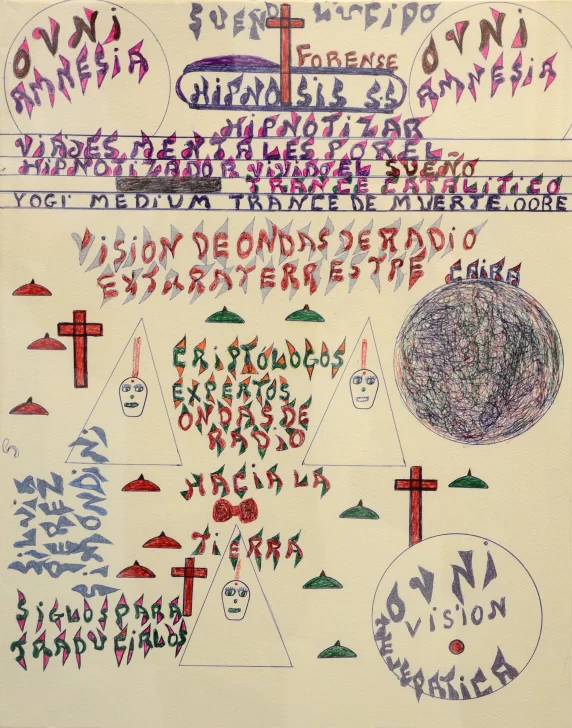 SUEÑO LUCIDO
OVNI
AMNESIA
FORENSE
HIPNOSIS S.S
OVNI
AMNESIA
HIPNOTIZAR
VIAJES MENTALES POR EL
HIPNOTIZADOR VIVIDO EL SUEÑO
TRANCE CATALITICO
YOGI MEDIUM TRANCE DE MUERTE.
VISION DE ONDAS DE RADIO
EXTARATERRESTRE
CRIPTOLOGOS
EXPERTOS
ONDAS DE
RADIO
HACIA LA
TIERRA
SIGLOS PARA
TRADUCIRLOS
OVNI
VISION